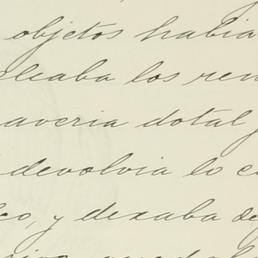 objetos habia
los ren
averia dotal
devolvia lo
y dexaba de